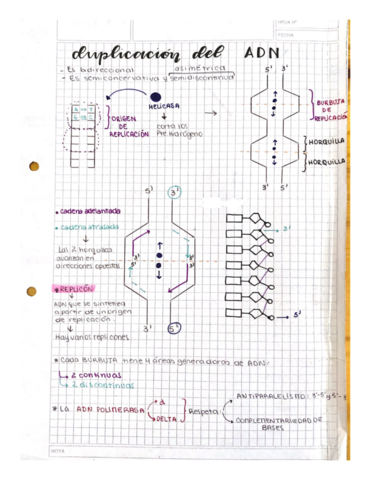 duplicación del ADN
- Es bidireccional asimétrica
- Es semiconservativa y semidiscontinua
5' 3'
HELICASA
A T
G C
ORIGEN DE REPLICACIÓN
corta los
Pte. Hidrógeno
BURBUJA DE REPLICACIÓN
HORQUILLA
HORQUILLA
3' 5'
5' 3'
• cadena adelantada
• cadena atrasada
Las 2 horquillas
avanzan en
direcciones opuestas
5' 3'
3' 5'
3'
* REPLICÓN
ADN que se sintetiza
a partir de un origen
de replicación
Hay varios replicones
3' 5'
5'
* Cada BURBUJA tiene 4 áreas generadoras de ADN:
2 continuas
2 discontinuas
* La ADN POLIMERASA
DELTA
Respeta
ANTIPARALELISMO:
COMPLEMENTARIEDAD DE
BASES
FECHA
NOTA